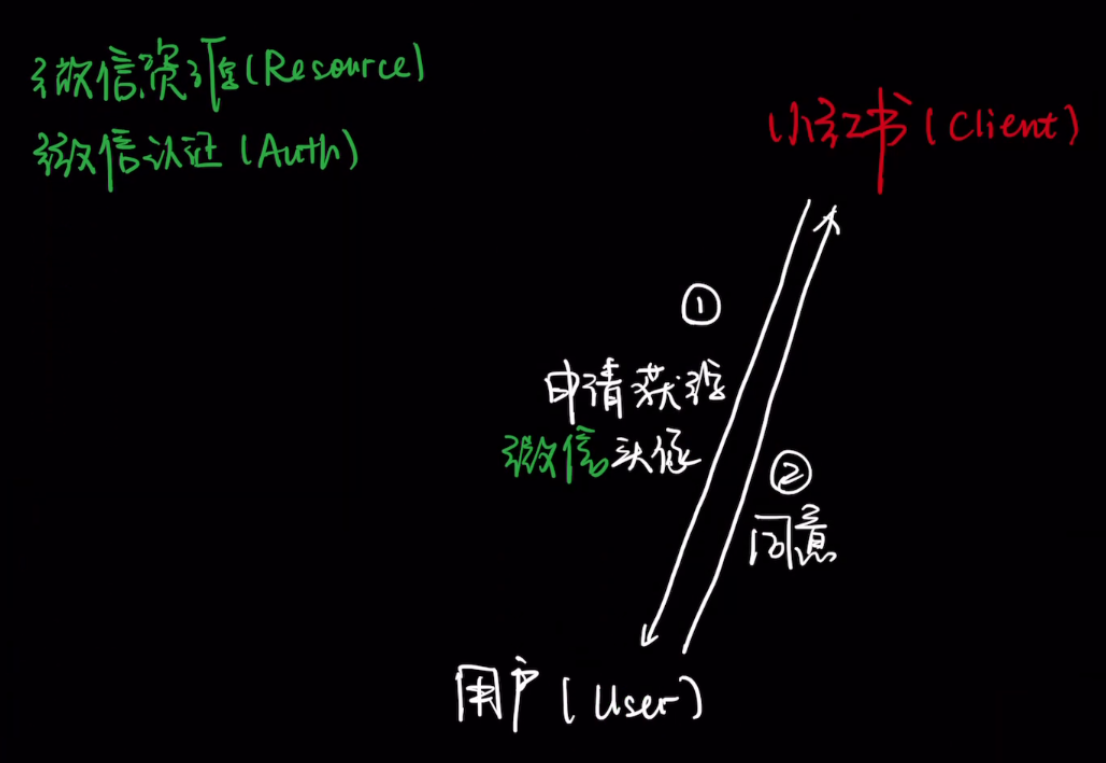 微信资源(Resource)
微信认证(Auth)
小红书(Client)
①
申请获得
微信头像
②
同意
用户(User)